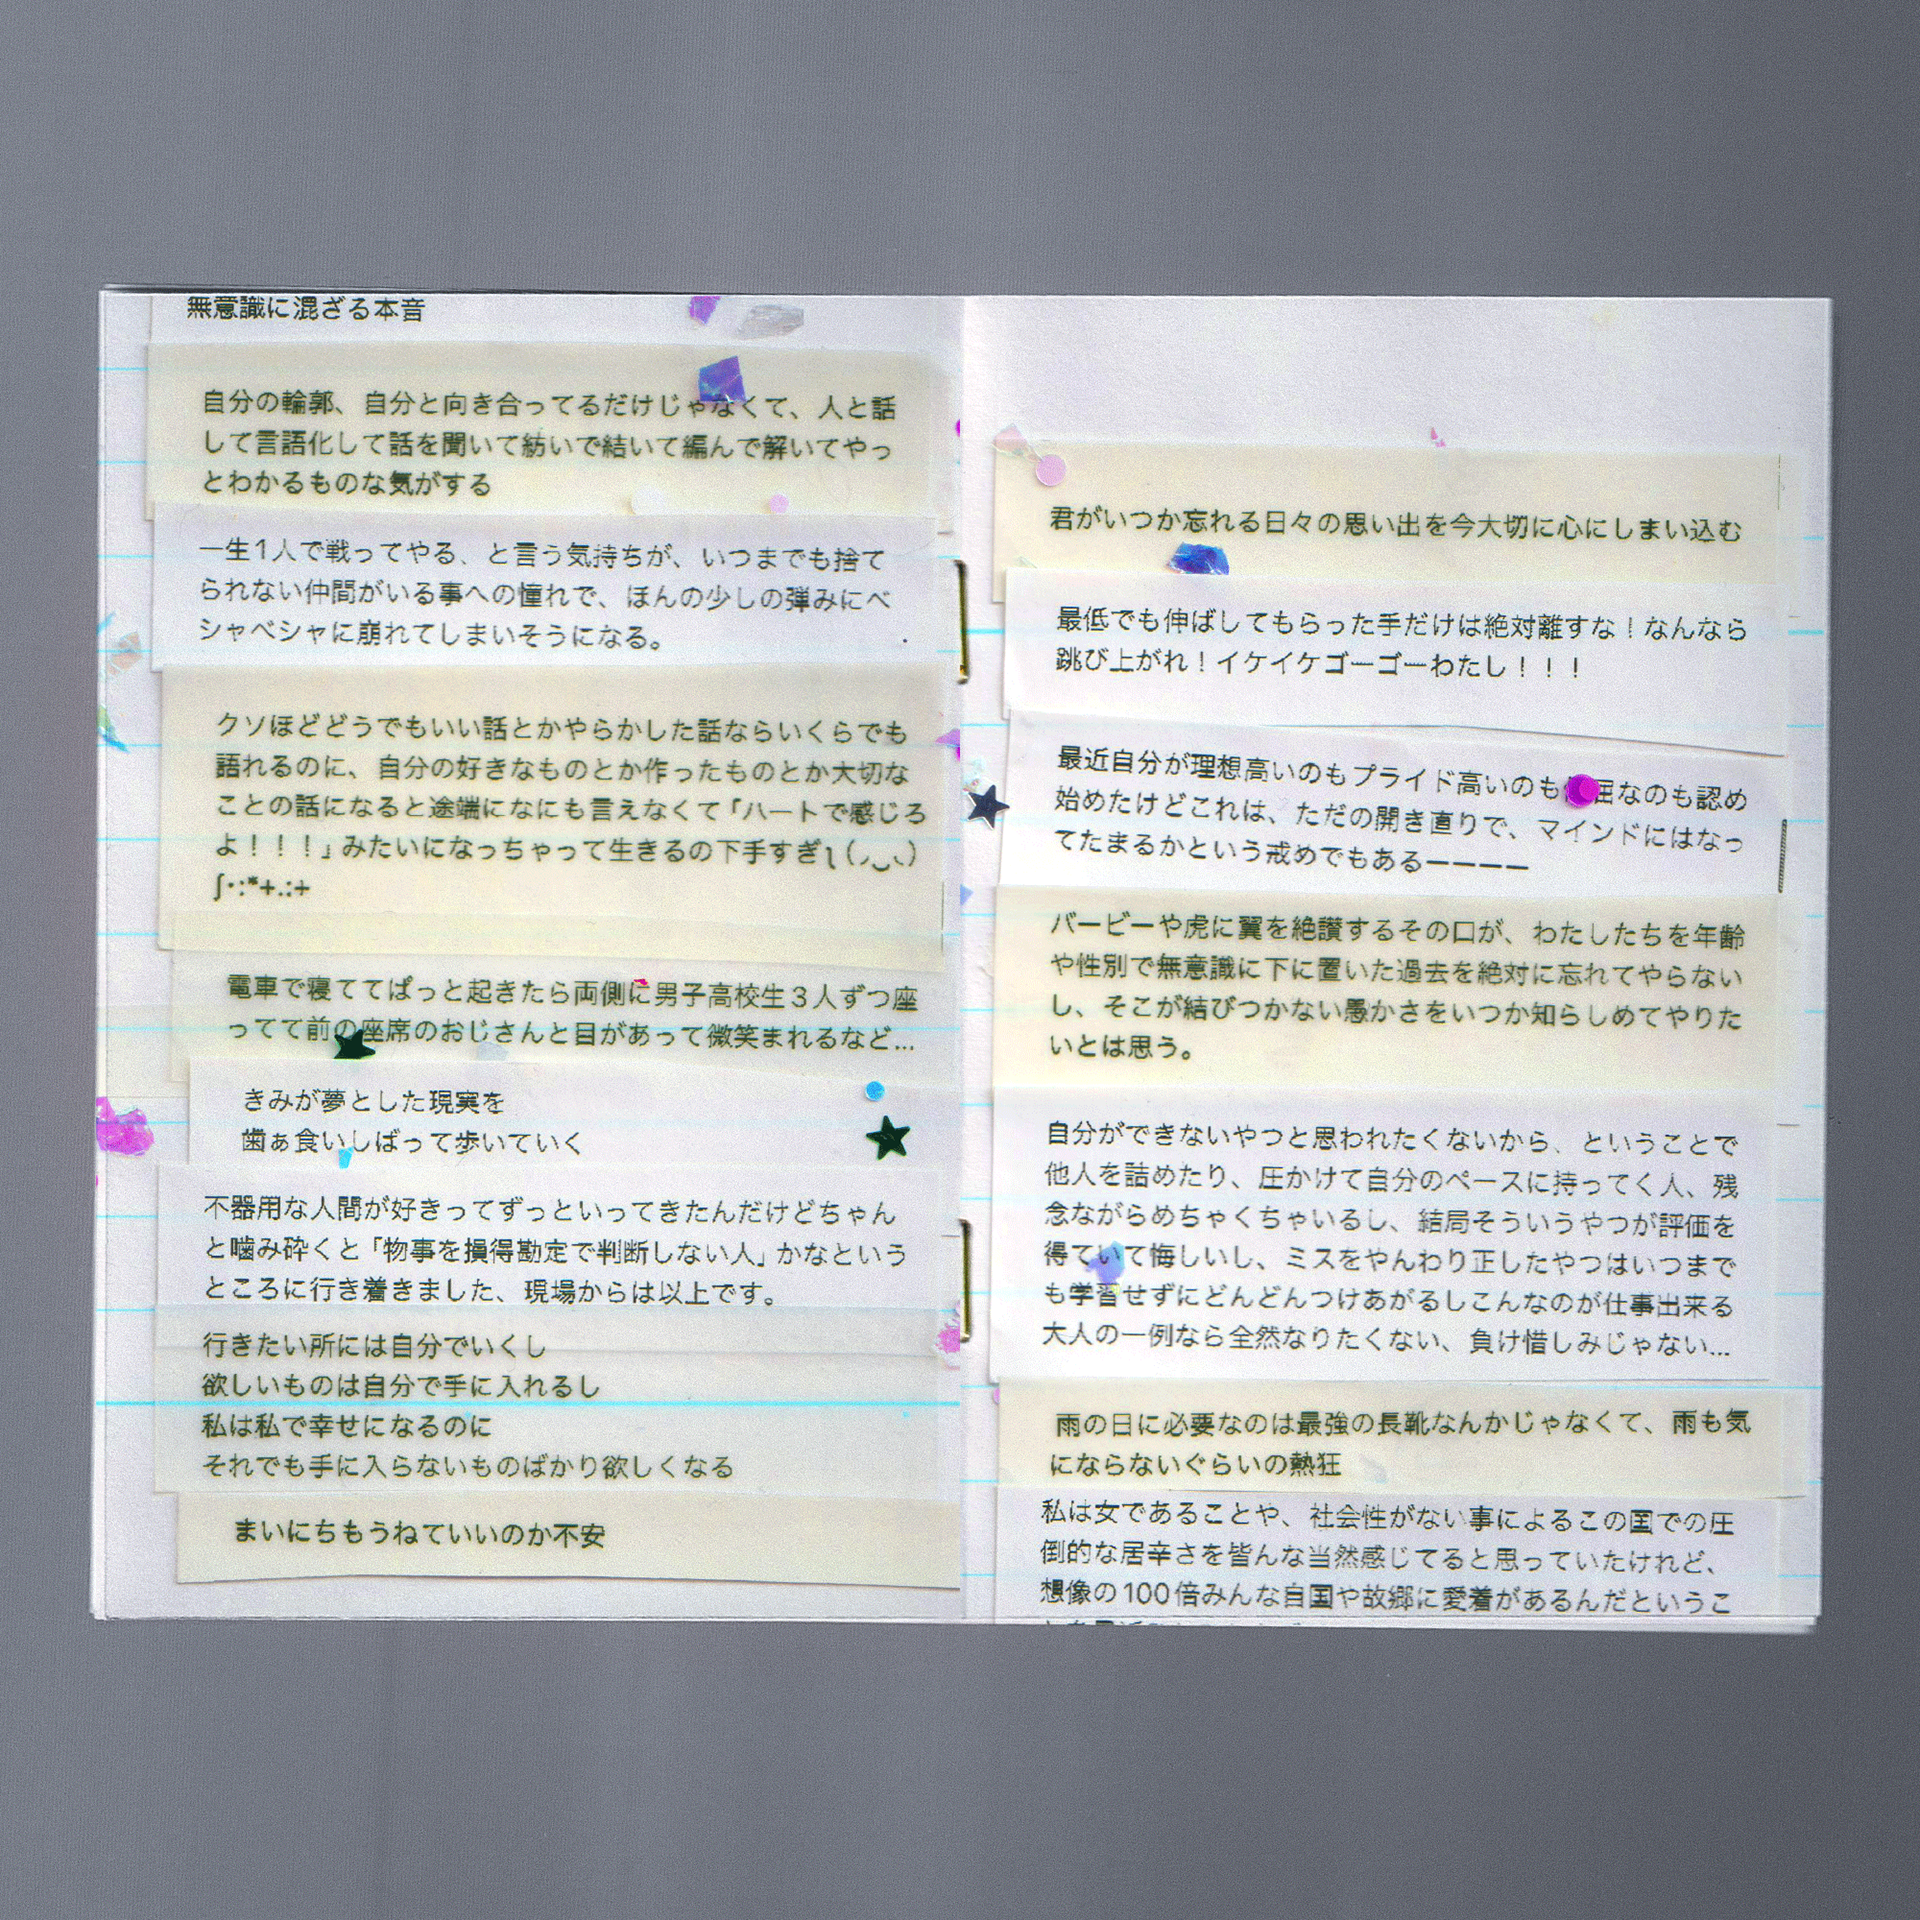 無意識に混ざる本音
自分の輪郭、自分と向き合ってるだけじゃなくて、人と話
して言語化して話を聞いて紡いで結いて編んで解いてやっ
とわかるものな気がする
一生1人で戦ってやる、と言う気持ちが、いつまでも捨て
られない仲間がいる事への憧れで、ほんの少しの弾みにベ
シャベシャに崩れてしまいそうになる。
クソほどどうでもいい話とかやらかした話ならいくらでも
語れるのに、自分の好きなものとか作ったものとか大切な
ことの話になると途端になにも言えなくて「ハートで感じろ
よ!!!」みたいになっちゃって生きるの下手すぎ
電車で寝ててぱっと起きたら両側に男子高校生3人ずつ座
ってて前の座席のおじさんと目があって微笑まれるなど...
きみが夢とした現実を
歯ぁ食いしばって歩いていく
不器用な人間が好きってずっといってきたんだけどちゃん
と噛み砕くと「物事を損得勘定で判断しない人」かなという
ところに行き着きました、現場からは以上です。
行きたい所には自分でいくし
欲しいものは自分で手に入れるし
私は私で幸せになるのに
それでも手に入らないものばかり欲しくなる
まいにちもうねていいのか不安
君がいつか忘れる日々の思い出を今大切に心にしまい込む
最低でも伸ばしてもらった手だけは絶対離すな!なんなら
跳び上がれ!イケイケゴーゴーわたし!!!
最近自分が理想高いのもプライド高いのも屈なのも認め
始めたけどこれは、ただの開き直りで、マインドにはなっ
てたまるかという戒めでもあるーーーー
バービーや虎に翼を絶讃するその口が、わたしたちを年齢
や性別で無意識に下に置いた過去を絶対に忘れてやらない
し、そこが結びつかない愚かさをいつか知らしめてやりた
いとは思う。
自分ができないやつと思われたくないから、ということで
他人を詰めたり、圧かけて自分のペースに持ってく人、残
念ながらめちゃくちゃいるし、結局そういうやつが評価を
得ていて悔しいし、ミスをやんわり正したやつはいつまで
も学習せずにどんどんつけあがるしこんなのが仕事出来る
大人の一例なら全然なりたくない、負け惜しみじゃない...
雨の日に必要なのは最強の長靴なんかじゃなくて、雨も気
にならないぐらいの熱狂
私は女であることや、社会性がない事によるこの国での圧
倒的な居辛さを皆んな当然感じてると思っていたけれど、
想像の100倍みんな自国や故郷に愛着があるんだというこ